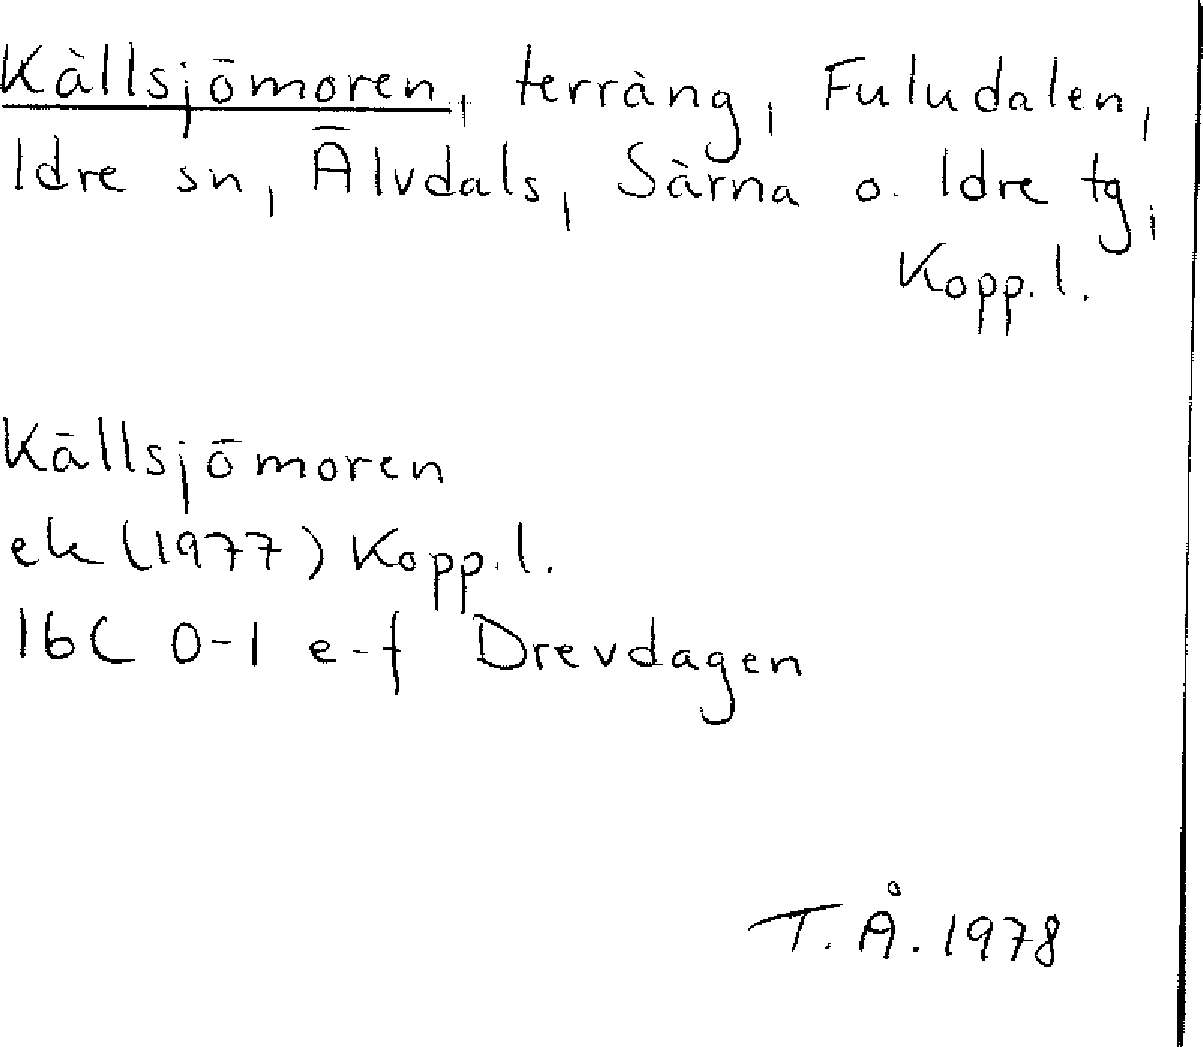 Källsjömoren, terräng, Fuludalen,
Idre sn, Älvdals, Särna o. Idre tg,
Kopp. l.
Källsjömoren
ek (1977) Kopp. l.
16C 0-1 e-f Drevdagen
T. Å. 1978